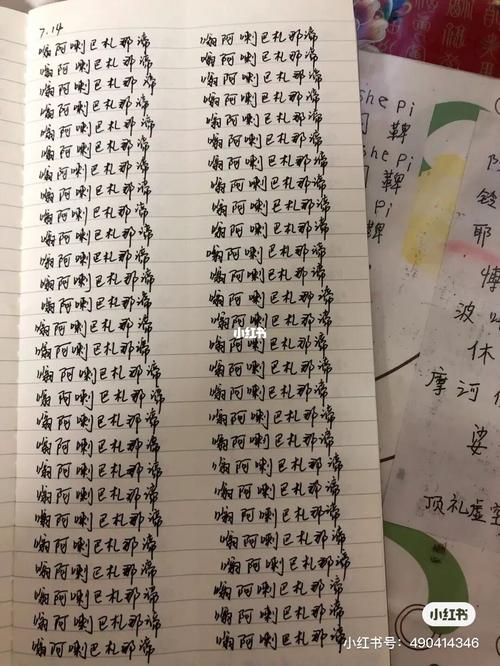 7.14
嗡阿喇巴札那谛
嗡阿喇巴札那谛
嗡阿喇巴札那谛
嗡阿喇巴札那谛
嗡阿喇巴札那谛
嗡阿喇巴札那谛
嗡阿喇巴札那谛
嗡阿喇巴札那谛
嗡阿喇巴札那谛
嗡阿喇巴札那谛
嗡阿喇巴札那谛
嗡阿喇巴札那谛
嗡阿喇巴札那谛
嗡阿喇巴札那谛
嗡阿喇巴札那谛
嗡阿喇巴札那谛
嗡阿喇巴札那谛
嗡阿喇巴札那谛
嗡阿喇巴札那谛
嗡阿喇巴札那谛
嗡阿喇巴札那谛
嗡阿喇巴札那谛
嗡阿喇巴札那谛
嗡阿喇巴札那谛
嗡阿喇巴札那谛
嗡阿喇巴札那谛
嗡阿喇巴札那谛
嗡阿喇巴札那谛
嗡阿喇巴札那谛
嗡阿喇巴札那谛
嗡阿喇巴札那谛
嗡阿喇巴札那谛
嗡阿喇巴札那谛
嗡阿喇巴札那谛
嗡阿喇巴札那谛
嗡阿喇巴札那谛
嗡阿喇巴札那谛
嗡阿喇巴札那谛
嗡阿喇巴札那谛
嗡阿喇巴札那谛
嗡阿喇巴札那谛
嗡阿喇巴札那谛
嗡阿喇巴札那谛
嗡阿喇巴札那谛
嗡阿喇巴札那谛
嗡阿喇巴札那谛
嗡阿喇巴札那谛
嗡阿喇巴札那谛
嗡阿喇巴札那谛
嗡阿喇巴札那谛
嗡阿喇巴札那谛
嗡阿喇巴札那谛
嗡阿喇巴札那谛
嗡阿喇巴札那谛
she Pi
鞞
she Pi
鞞
Pi
鞞
耶
波
休
摩河
娑
顶礼虚空
小红书
小红书
小红书号：490414346